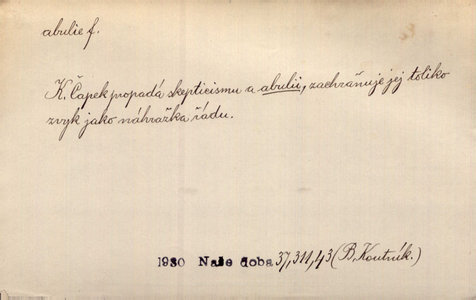 abulie f.
K. Čapek propadá skepticismu a abulii, zachraňuje jej toliko
zvyk jako náhražka řádu.
1930 Naše doba 37,311,43 (B. Koutník.)